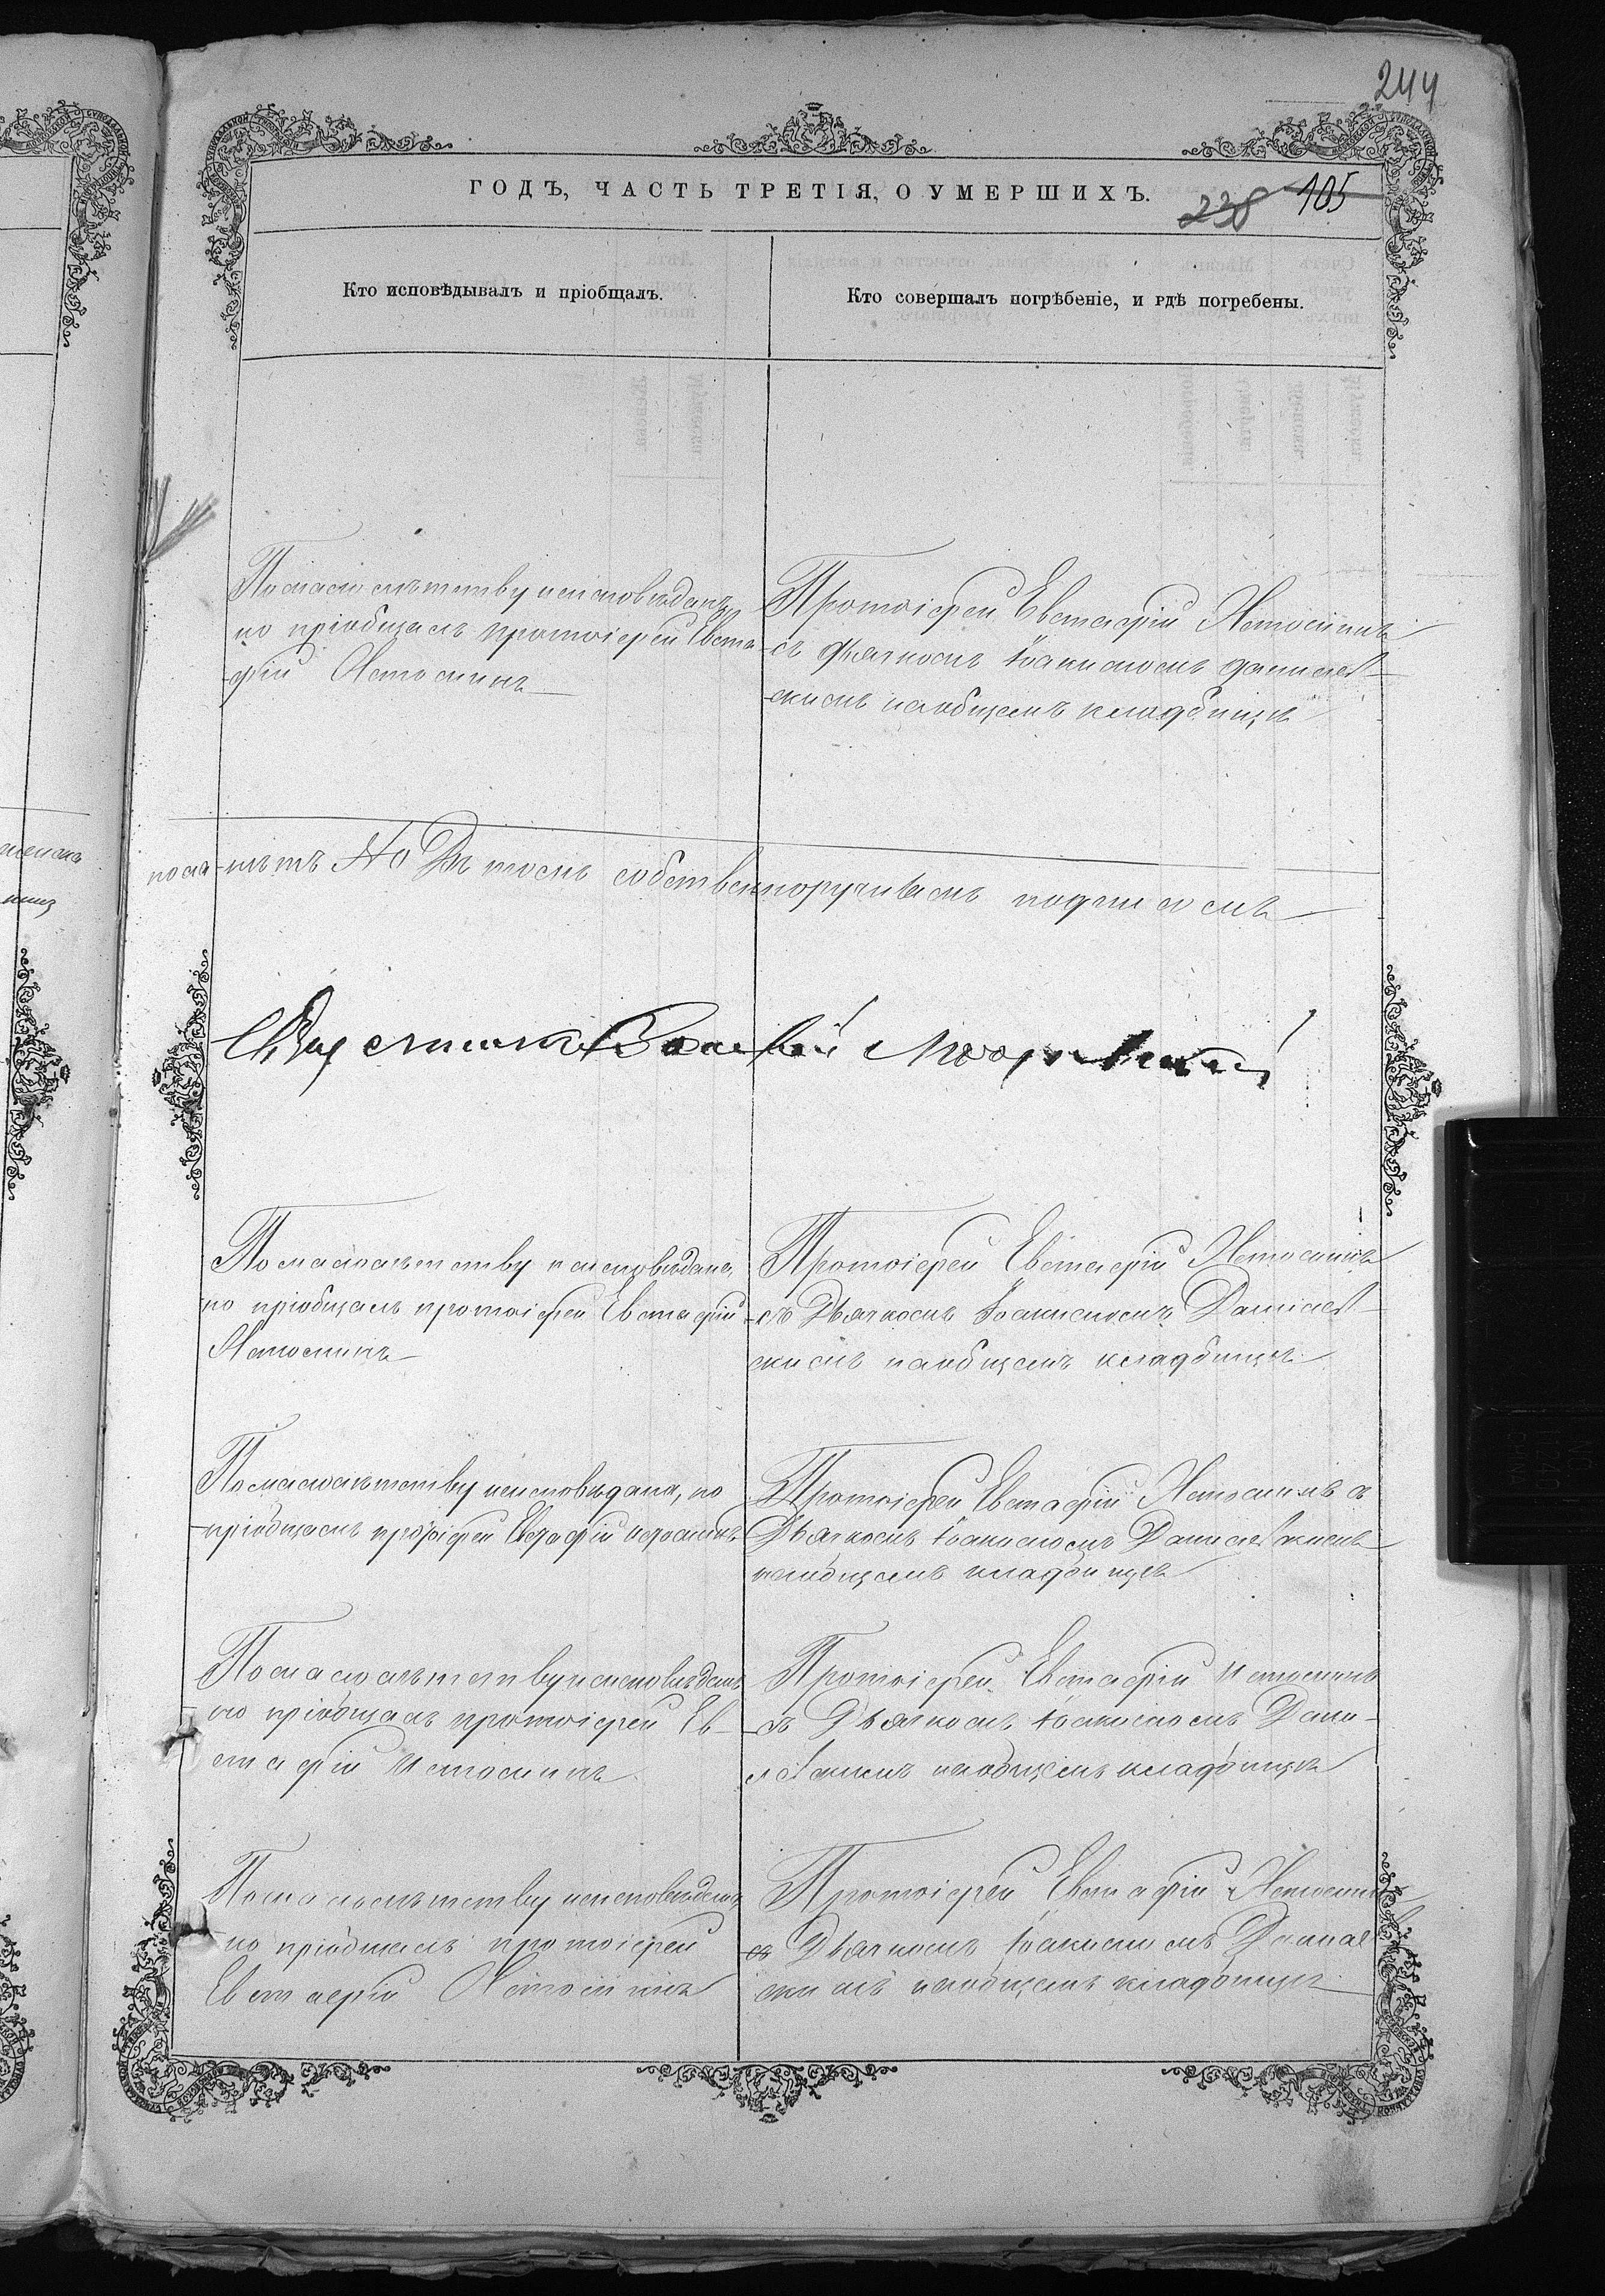 244
ГОДЪ, ЧАСТЬ ТРЕТІЯ, О УМЕРШИХЪ.
238 105
Кто исповѣдывалъ и пріобщалъ.
Кто совершалъ погрѣбеніе, и гдѣ погребены.
По малолѣтству неисповѣданъ,
но пріобщалъ протоіерей Евста-
фій Истоминъ
Протоіерей Евстафій Истоминъ
съ дьячкомъ Іоакимомъ Даниле-
скимъ на общемъ кладбищѣ
нѣтъ собственноручнымъ подписомъ
По малолѣтству неисповѣдана,
но пріобщалъ протоіерей Евстафій
Истоминъ
Протоіерей Евстафій Истоминъ
съ Дьячкомъ Іоакимомъ Даниле-
скимъ на общемъ кладбищѣ
По малолѣтству неисповѣдана, но
пріобщалъ протоіерей Евстафій Истоминъ
Протоіерей Евстафій Истоминъ съ
Дьячкомъ Іоакимомъ
на общемъ кладбищѣ
По малолѣтству неисповѣданъ
но пріобщалъ протоіерей Ев-
стафій Истоминъ
Протоіерей Евстафій Истоминъ
съ Дьячкомъ Іоакимомъ Дани-
на общемъ кладбищѣ
По малолѣтству неисповѣданъ,
но пріобщалъ протоіерей
Евстафій Истоминъ
Протоіерей Евстафій Истоминъ
съ Дьячкомъ Іоакимомъ Даниле
скимъ на общемъ кладбищѣ